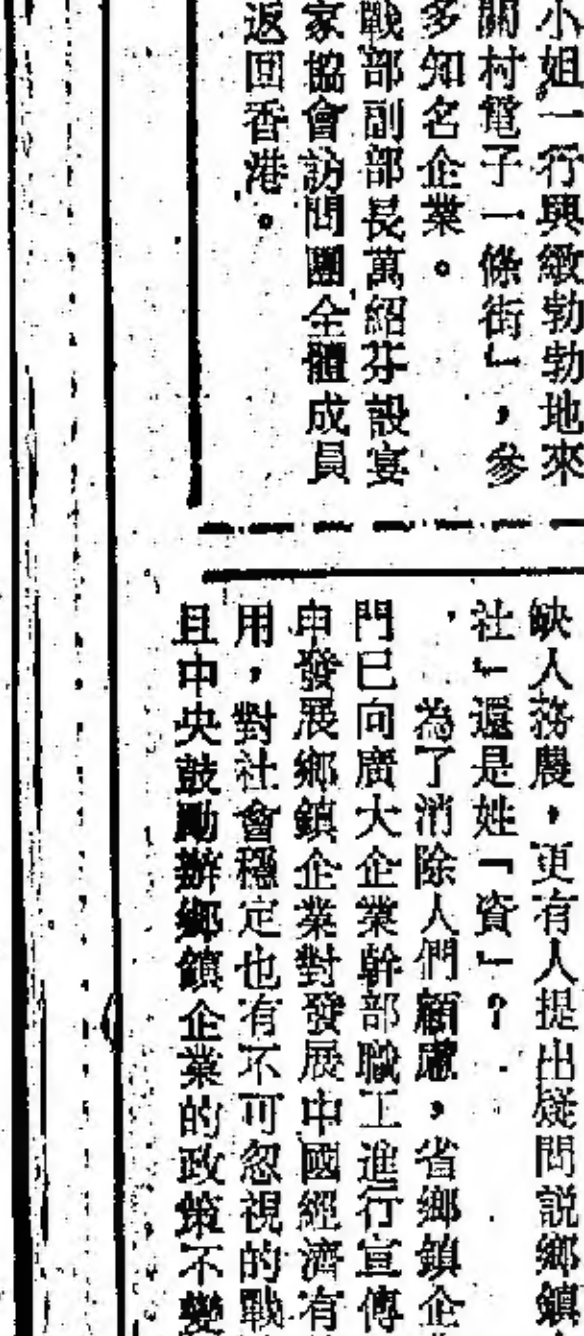 小姐一行興緻勃勃地來
關村電子一條街」，參
多知名企業。
戰部副部長萬紹芬設宴
家協會訪問團全體成員
返回香港。
缺人務農，更有人提出疑問説鄉鎮
社」還是姓「資」？
為了消除人們顧慮，省鄉鎮企
門已向廣大企業幹部職工進行宣傳
申發展鄉鎮企業對發展中國經濟有
用，對社會穩定也有不可忽視的戰
且中央鼓勵辦鄉鎮企業的政策不變